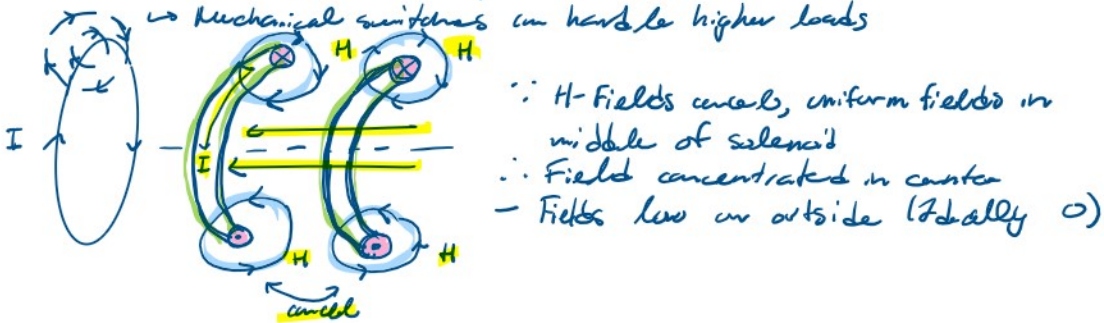 ↳ Mechanical switches can handle higher loads
H H
I
∵ H-Fields cancels, uniform fields in
middle of solenoid
I
∴ Field concentrated in center
- Fields low on outside (Ideally 0)
H H
cancel